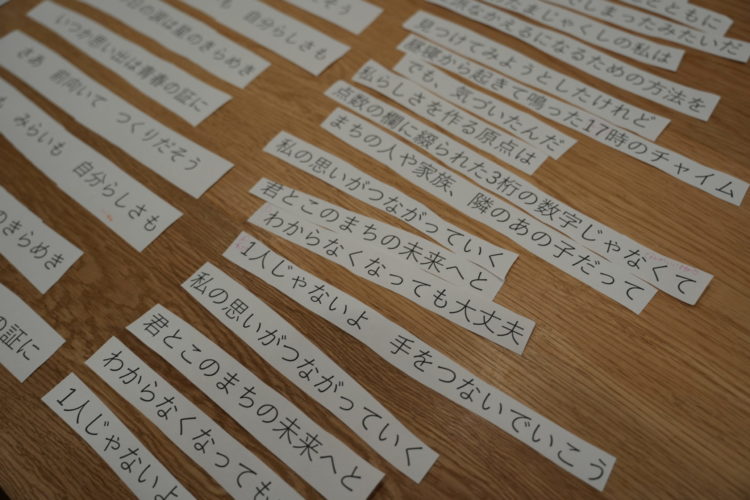 とともに
でしまったみたいだ
たまじゃくしの私は
かえるになるための方法を
見つけてみようとしたけれど
昼寝から起きて鳴った17時のチャイム
でも、気づいたんだ
私らしさを作る原点は
点数の欄に綴られた3桁の数字じゃなくて
まちの人や家族、隣のあの子だって
私の思いがつながっていく
君とこのまちの未来へと
わからなくなっても大丈夫
1人じゃないよ 手をつないでいこう
私の思いがつながっていく
君とこのまちの未来へと
わからなくなっても
1人じゃないよ
自分らしさも
の涙は星のきらめき
いつか思い出は青春の証に
さあ 前向いて つくりだそう
みらいも 自分らしさも
のきらめき
の証に